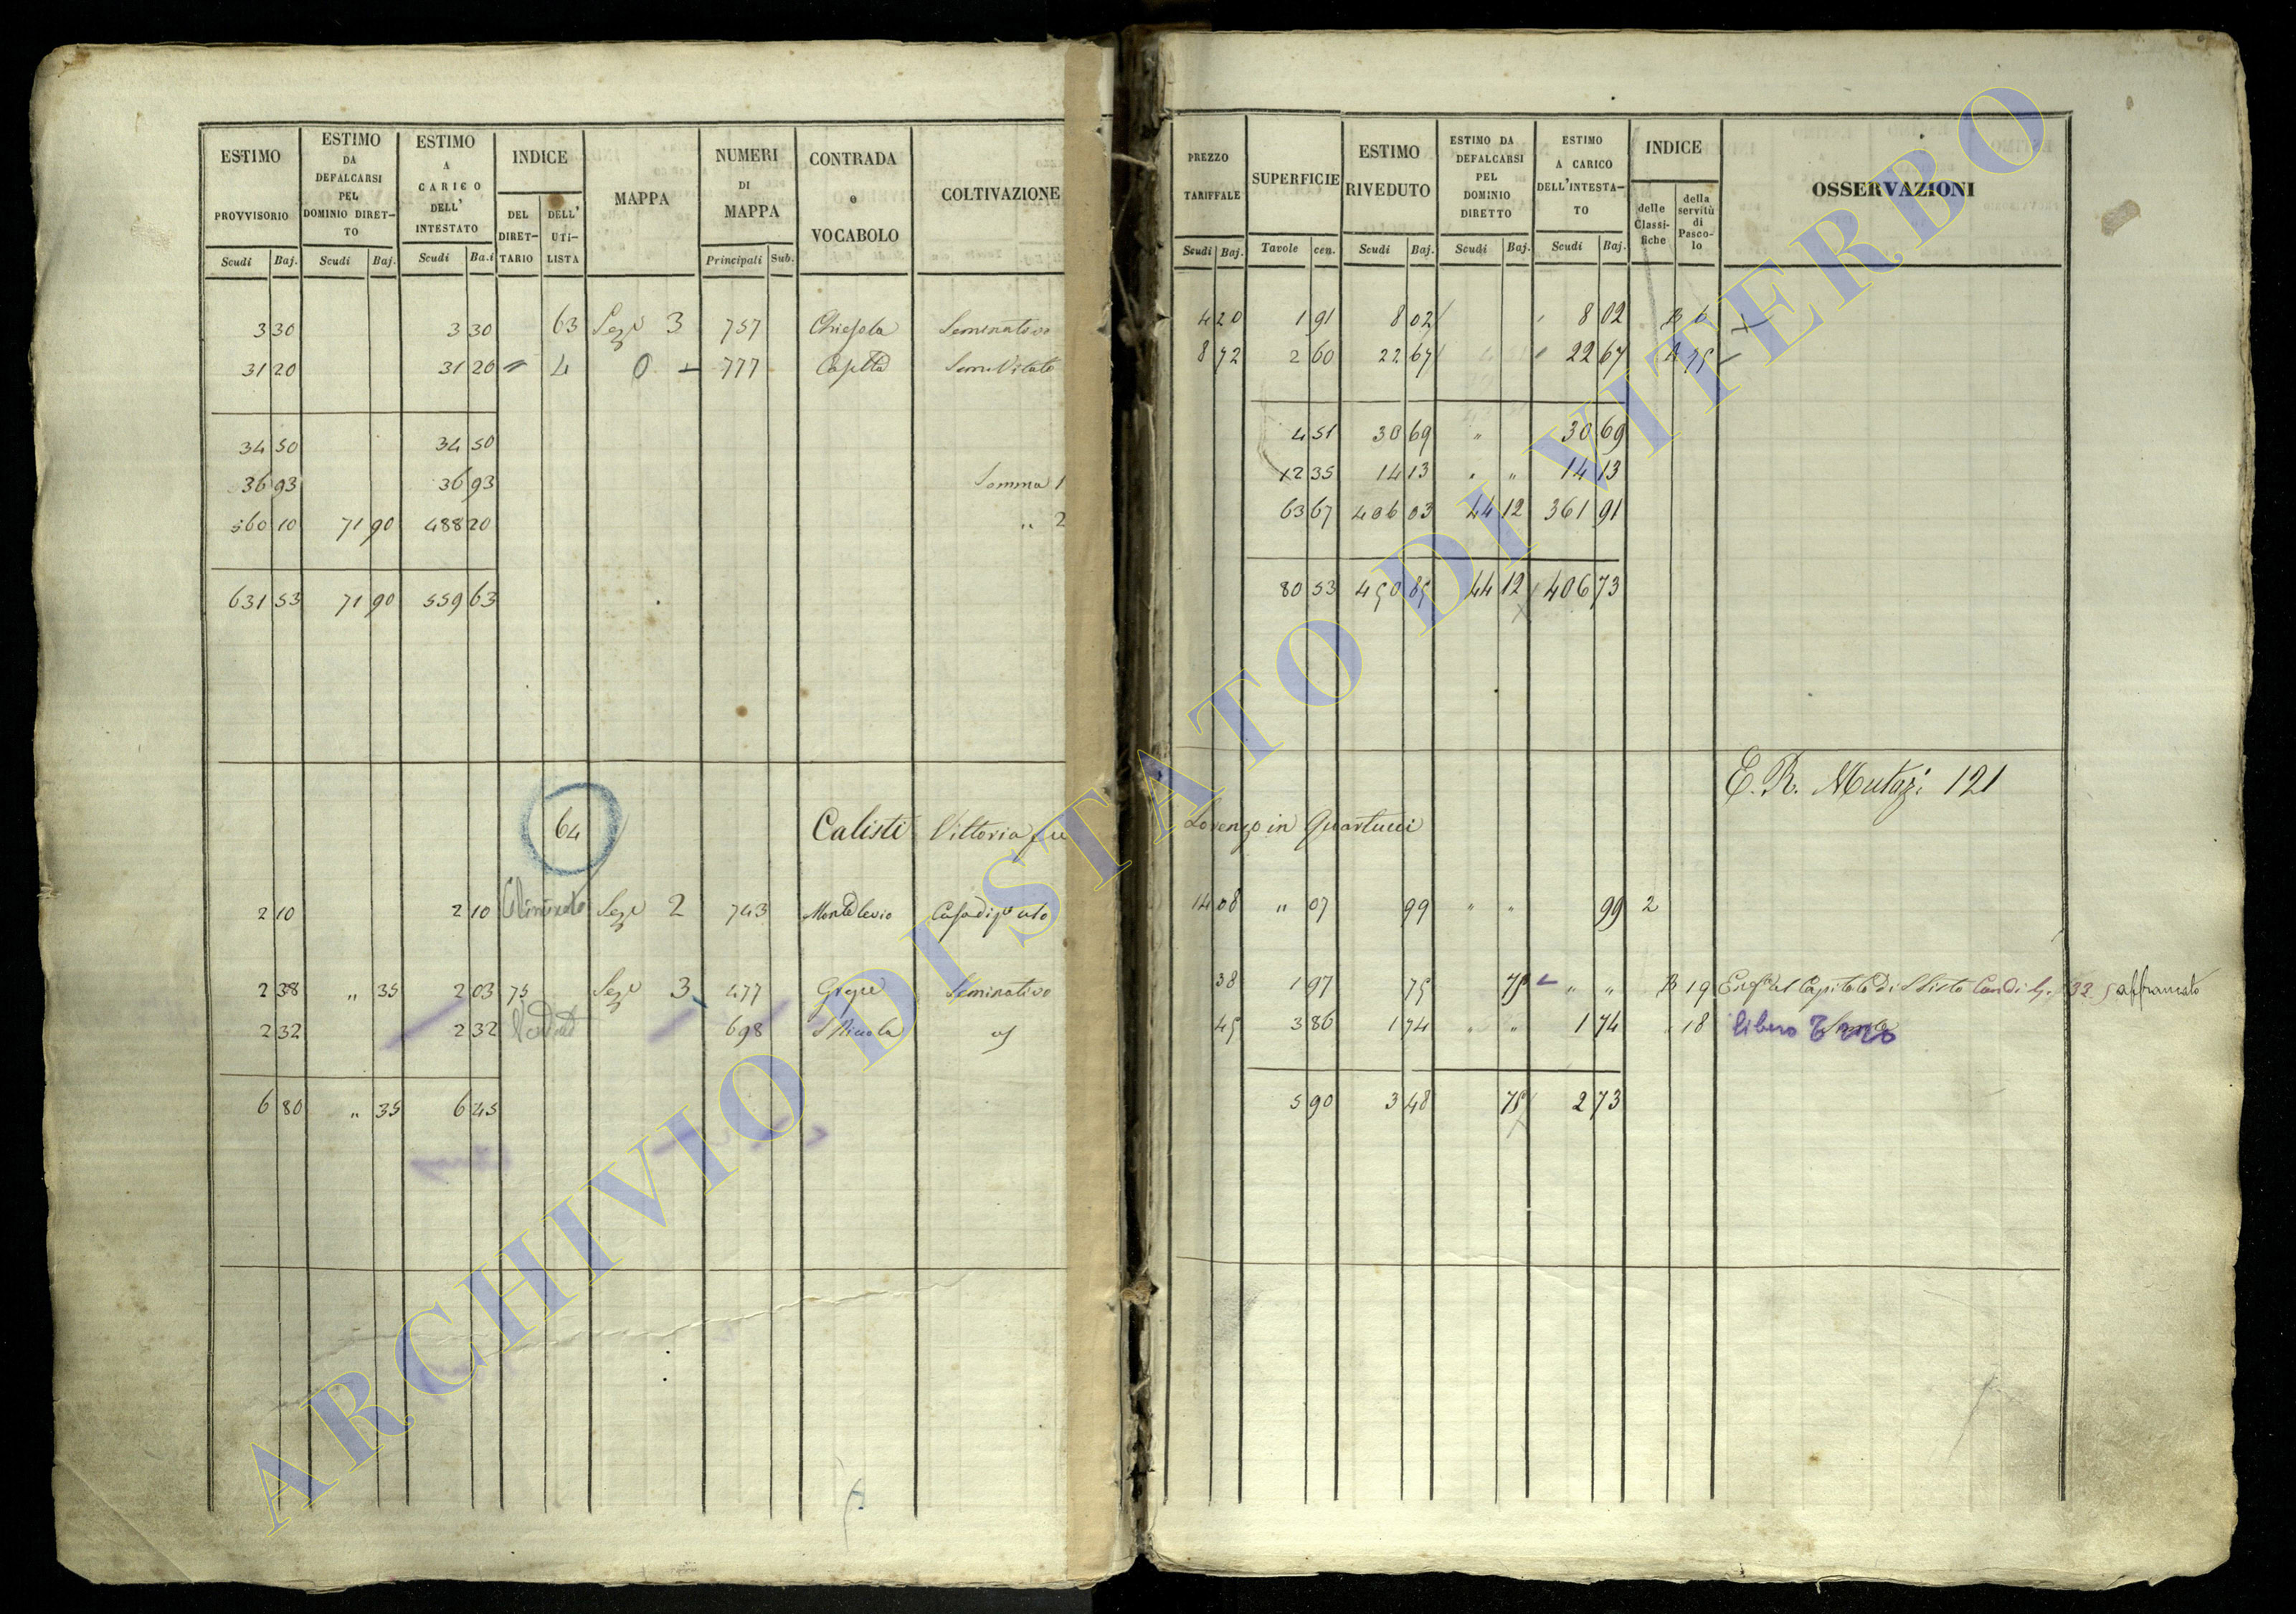 ESTIMO PROVVISORIO Scudi Baj. | ESTIMO DA DEFALCARSI PEL DOMINIO DIRETTO Scudi Baj. | ESTIMO A CARICO DELL' INTESTATO Scudi Ba.i | INDICE DEL DIRETTARIO DELL' UTILISTA | MAPPA | NUMERI DI MAPPA Principali Sub. | CONTRADA o VOCABOLO | COLTIVAZIONE
PREZZO TARIFFALE Scudi Baj. | SUPERFICIE Tavole cen. | ESTIMO RIVEDUTO Scudi Baj. | ESTIMO DA DEFALCARSI PEL DOMINIO DIRETTO Scudi Baj. | ESTIMO A CARICO DELL'INTESTATO Scudi Baj. | INDICE delle Classifiche della servitù di Pascolo | OSSERVAZIONI
3 30 3 30 63 Seze 3 757 Chiesola Seminativo 4 20 1 91 8 02 8 02 B 6
31 20 31 20 " 4 0 777 Semi Vitato 8 72 2 60 22 67 22 67 75
34 50 34 50 4 51 30 69 " 30 69
36 93 36 93 Somma 1 12 35 14 13 " " 14 13
560 10 71 90 488 20 " 2 63 67 406 03 44 12 361 91
631 53 71 90 559 63 80 53 450 85 44 12 406 73
E. R. Mutazi 121
64 Calisti Vittoria fu Lorenzo in Quartucci
2 10 2 10 Seze 2 743 Casa di po uso 14 08 " 07 99 " " 99 2
2 38 " 35 2 03 75 Seze 3 477 Seminativo 38 1 97 75 75 " " B 19 al Capitolo di S Sisto 33 affrancato
2 32 2 32 698 S Nicola 45 3 86 1 74 " " 1 74 18 libero
6 80 " 35 6 45 5 90 3 48 75 2 73
ARCHIVIO DI STATO DI VITERBO